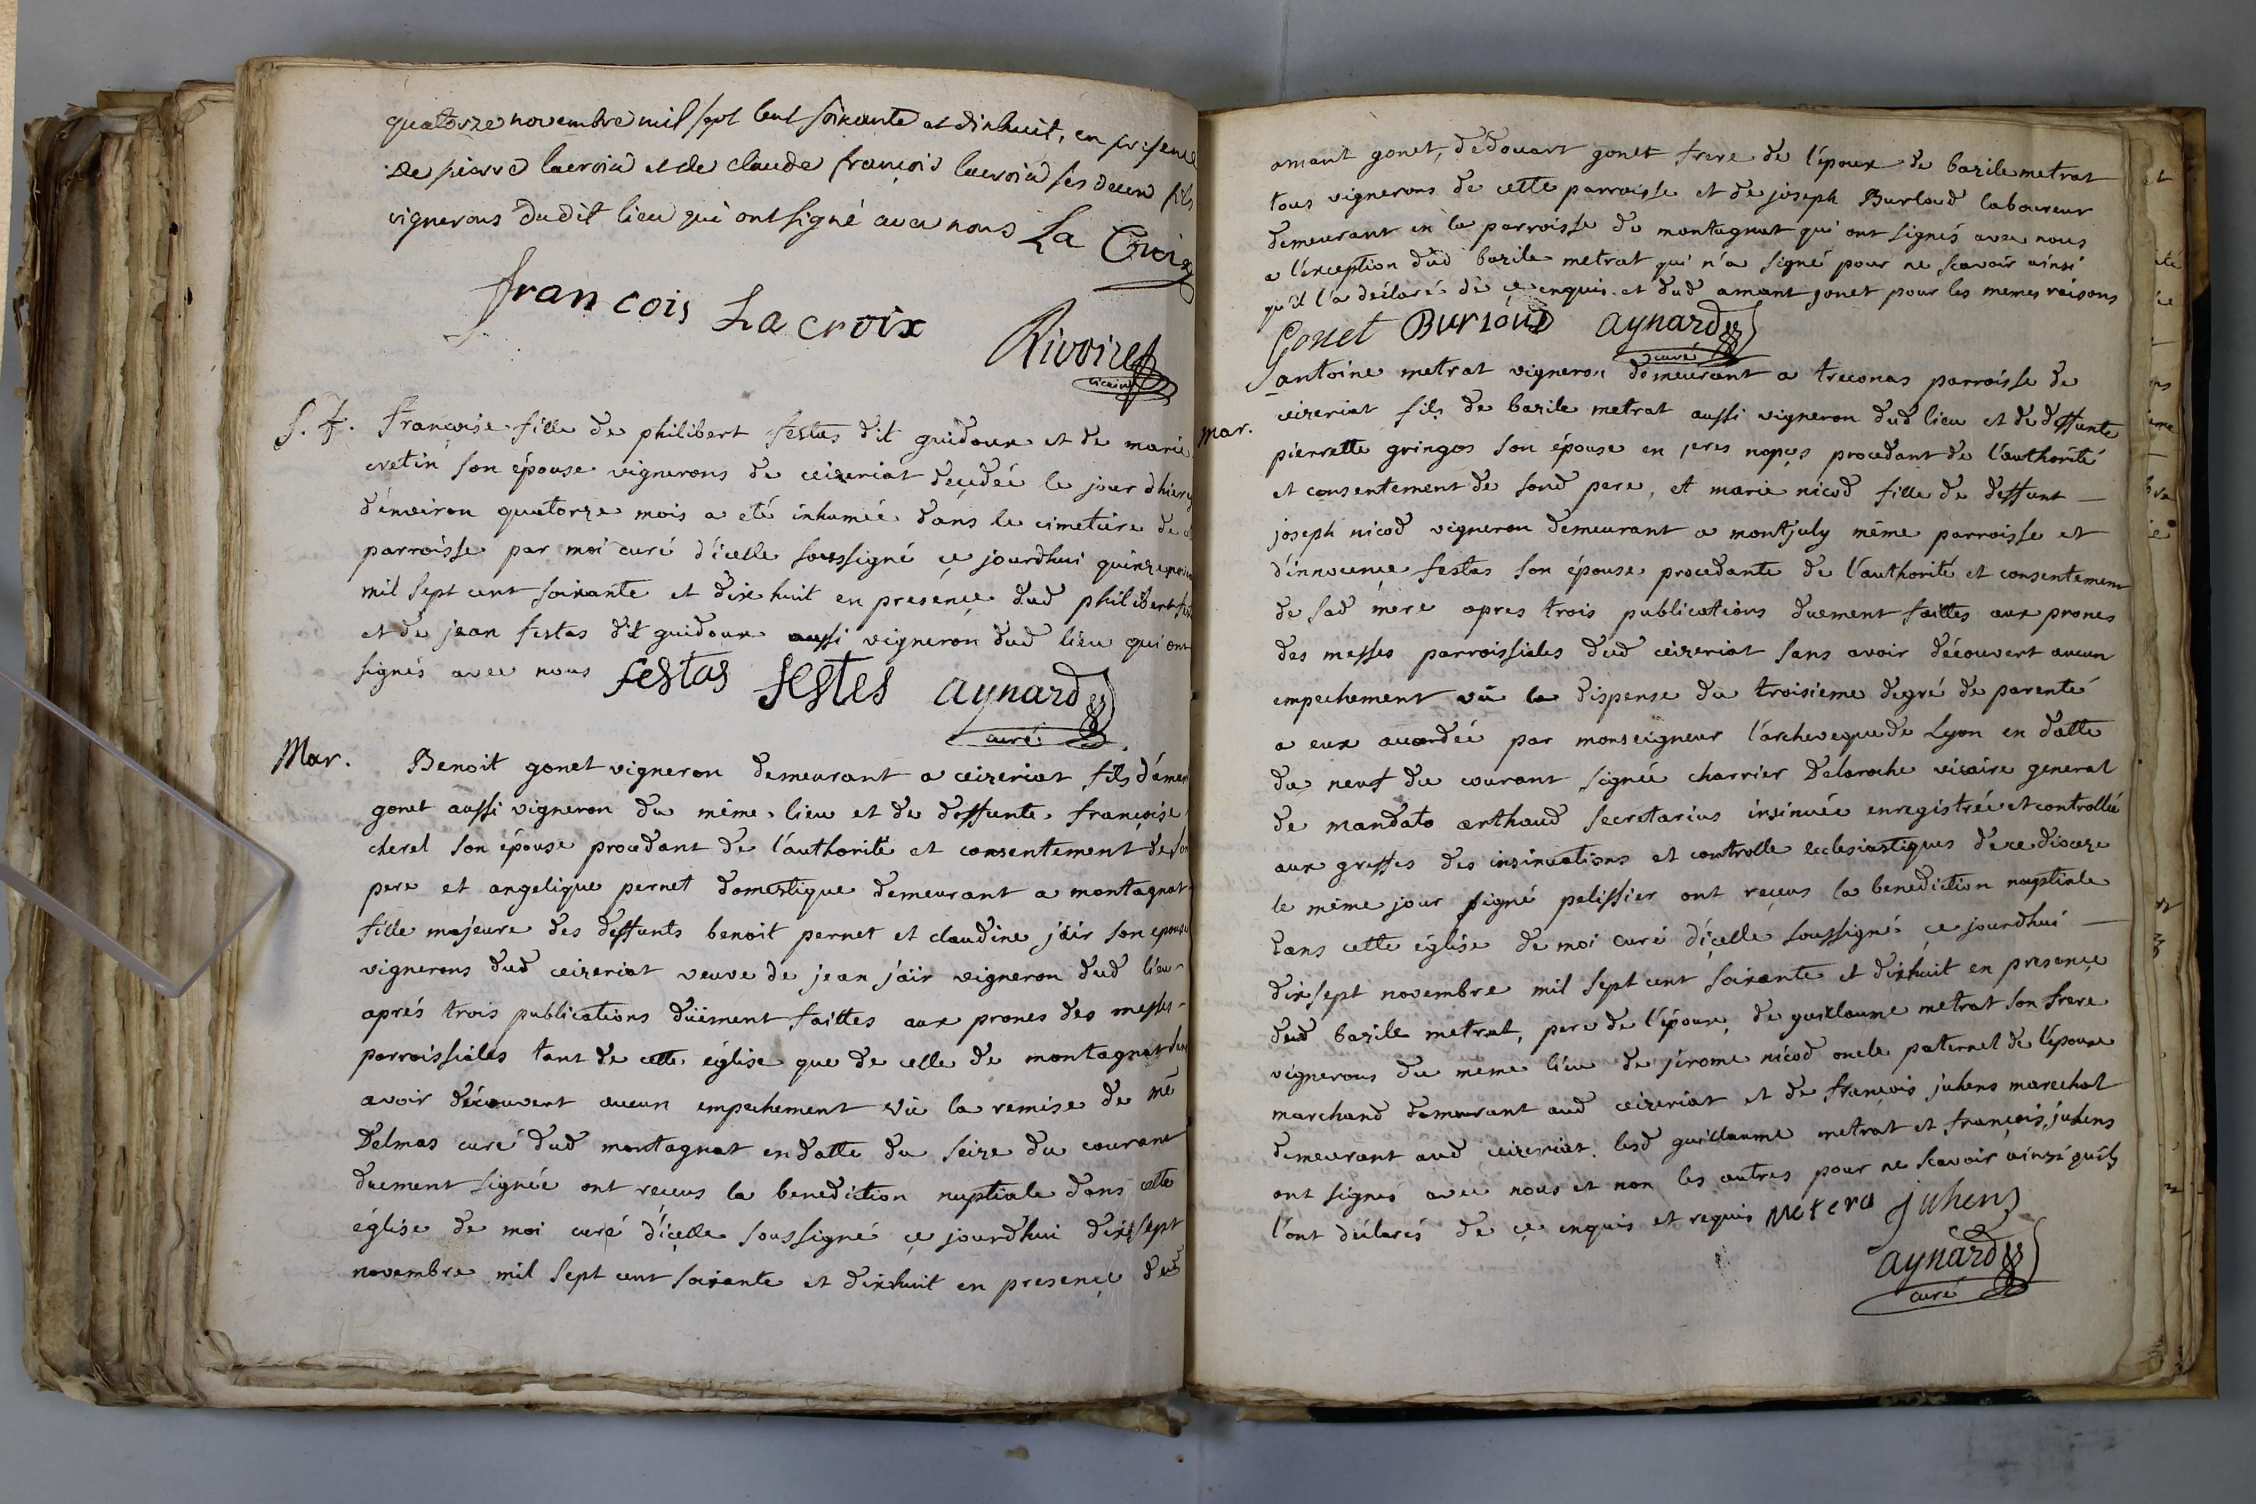 quatorze novembre mil sept cent soixante et dixhuit, en presence
de pierre lacroix et de claude françois lacroix ses deux fils
vignerons dudit lieu qui ont signé avec nous La Croix
francois Lacroix
Rivoire
vicaire
S. f. françoise fille de philibert festas dit guidoux et de marie
cretin son épouse vignerons de ceizeriat decedée le jour d'hier
d'environ quatorze mois a eté inhumée dans le cimetiere de
parroisse par moi curé d'icelle soussigné ce jourd'hui quinze
mil sept cent soixante et dix huit en presence dud philibert
et de jean festas dit guidoux aussi vigneron dud lieu qui ont
signés avec nous festas festes aynard
curé
Mar. Benoit gonet vigneron demeurant a ceizeriat fils d'
gonet aussi vigneron du même lieu et de deffunte françoise
cherel son épouse procedant de l'authorité et consentement de son
pere et angelique pernet domestique demeurant a montagnat
fille majeure des deffunts benoit pernet et claudine jäir son epouse
vignerons dud ceizeriat veuve de jean jäir vigneron dud lieu
aprés trois publications düement faittes aux prones des messes
parroissiales tant de cette église que de celle de montagnat
avoir découvert aucun empechement vü la remise de me
Delmas curé dud montagnat en datte du seize du courant
duement signée ont reçus la benediction nuptiale dans cette
église de moi curé d'icelle soussigné ce jourd'hui dix sept
novembre mil sept cent soixante et dixhuit en presence dud
amant gonet, dedouart gonet frere de l'époux de bazile metrat
tous vignerons de cette parroisse et de joseph Burloud laboureur
demeurant en la parroisse de montagnat qui ont signés avec nous
a l'exception dud bazile metrat qui n'a signé pour ne scavoir ainsi
qu'il l'a déclaré de ce enquis et dud amant gonet pour les memes raisons
Gonet Burloud aynard
curé
antoine metrat vigneron demeurant a treconas parroisse de
Mar. ceizeriat fils de bazile metrat aussi vigneron dud lieu et de deffunte
pierrette gringos son épouse en 1eres nopçes procedant de l'authorité
et consentement de sond pere, et marie nicod fille de deffunt
joseph nicod vigneron demeurant a montjuly même parroisse et
d'innocence festas son épouse procedante de l'authorité et consentement
de sad mere apres trois publications duement faittes aux prones
des messes parroissiales dud ceizeriat sans avoir découvert aucun
empechement vü la dispense du troisieme degré de parenté
a eux accordée par monseigneur l'archeveque de Lyon en datte
du neuf du courant signée charrier Delaroche vicaire general
de mandato arthaud secretarius insinuée enregistrée et controllée
aux greffes des insinuations et controlle ecclesiastiques de ce dioceze
le même jour signé pelissier ont reçus la benediction nuptiale
dans cette église de moi curé d'icelle soussigné ce jourd'hui
dix sept novembre mil sept cent soixante et dixhuit en presence
dud bazile metrat, pere de l'époux, de guillaume metrat son frere
vignerons du même lieu de jérome nicod oncle paternel de l'épouse
marchand demeurant aud ceizeriat et de françois juhens marechal
demeurant aud ceizeriat lesd guillaume metrat et françois juhens
ont signés avec nous et non les autres pour ne scavoir ainsi qu'ils
l'ont déclarés de ce enquis et requis Metera juhens
aynard
curé